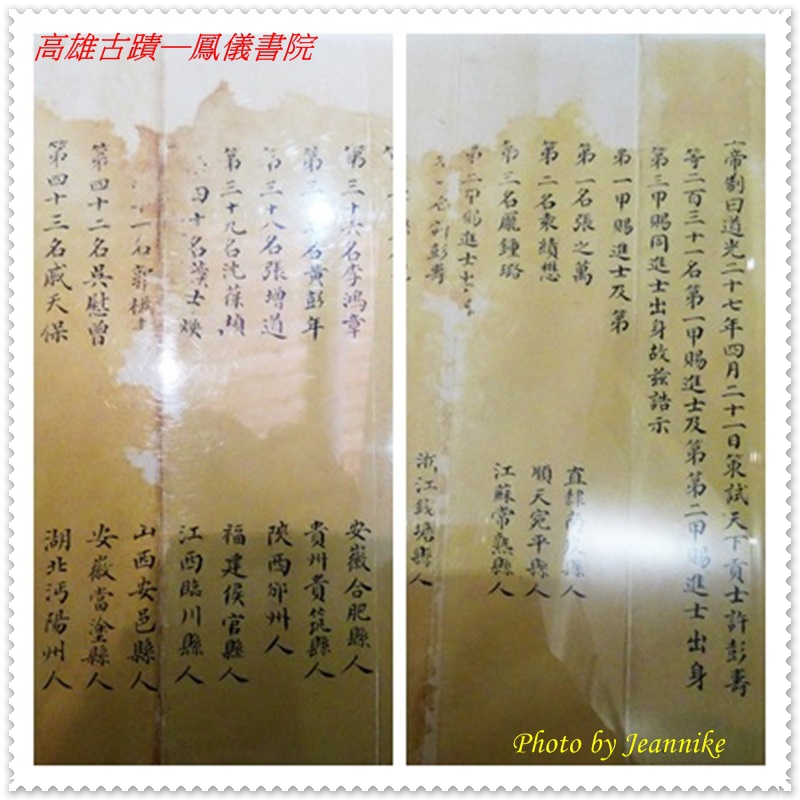 高雄古蹟—鳳儀書院
帝制曰道光二十七年四月二十一日策試天下貢士許彭壽
等二百三十一名第一甲賜進士及第第二甲賜進士出身
第三甲賜同進士出身故茲誥示
第一甲賜進士及第
第一名張之萬 直隸南縣人
第二名袁績懋 順天宛平縣人
第三名龐鍾璐 江蘇常熟縣人
第二甲賜進士出身
名許彭壽 浙江錢塘縣人
第三十六名李鴻章 安徽合肥縣人
第三名黃彭年 貴州貴筑縣人
第三十八名張增道 陝西邠州人
第三十九名沈葆楨 福建侯官縣人
四十名黃士煥 江西臨川縣人
一名郭 山西安邑縣人
第四十二名吳慰曾 安徽當塗縣人
第四十三名戚天保 湖北沔陽州人
Photo by Jeannike